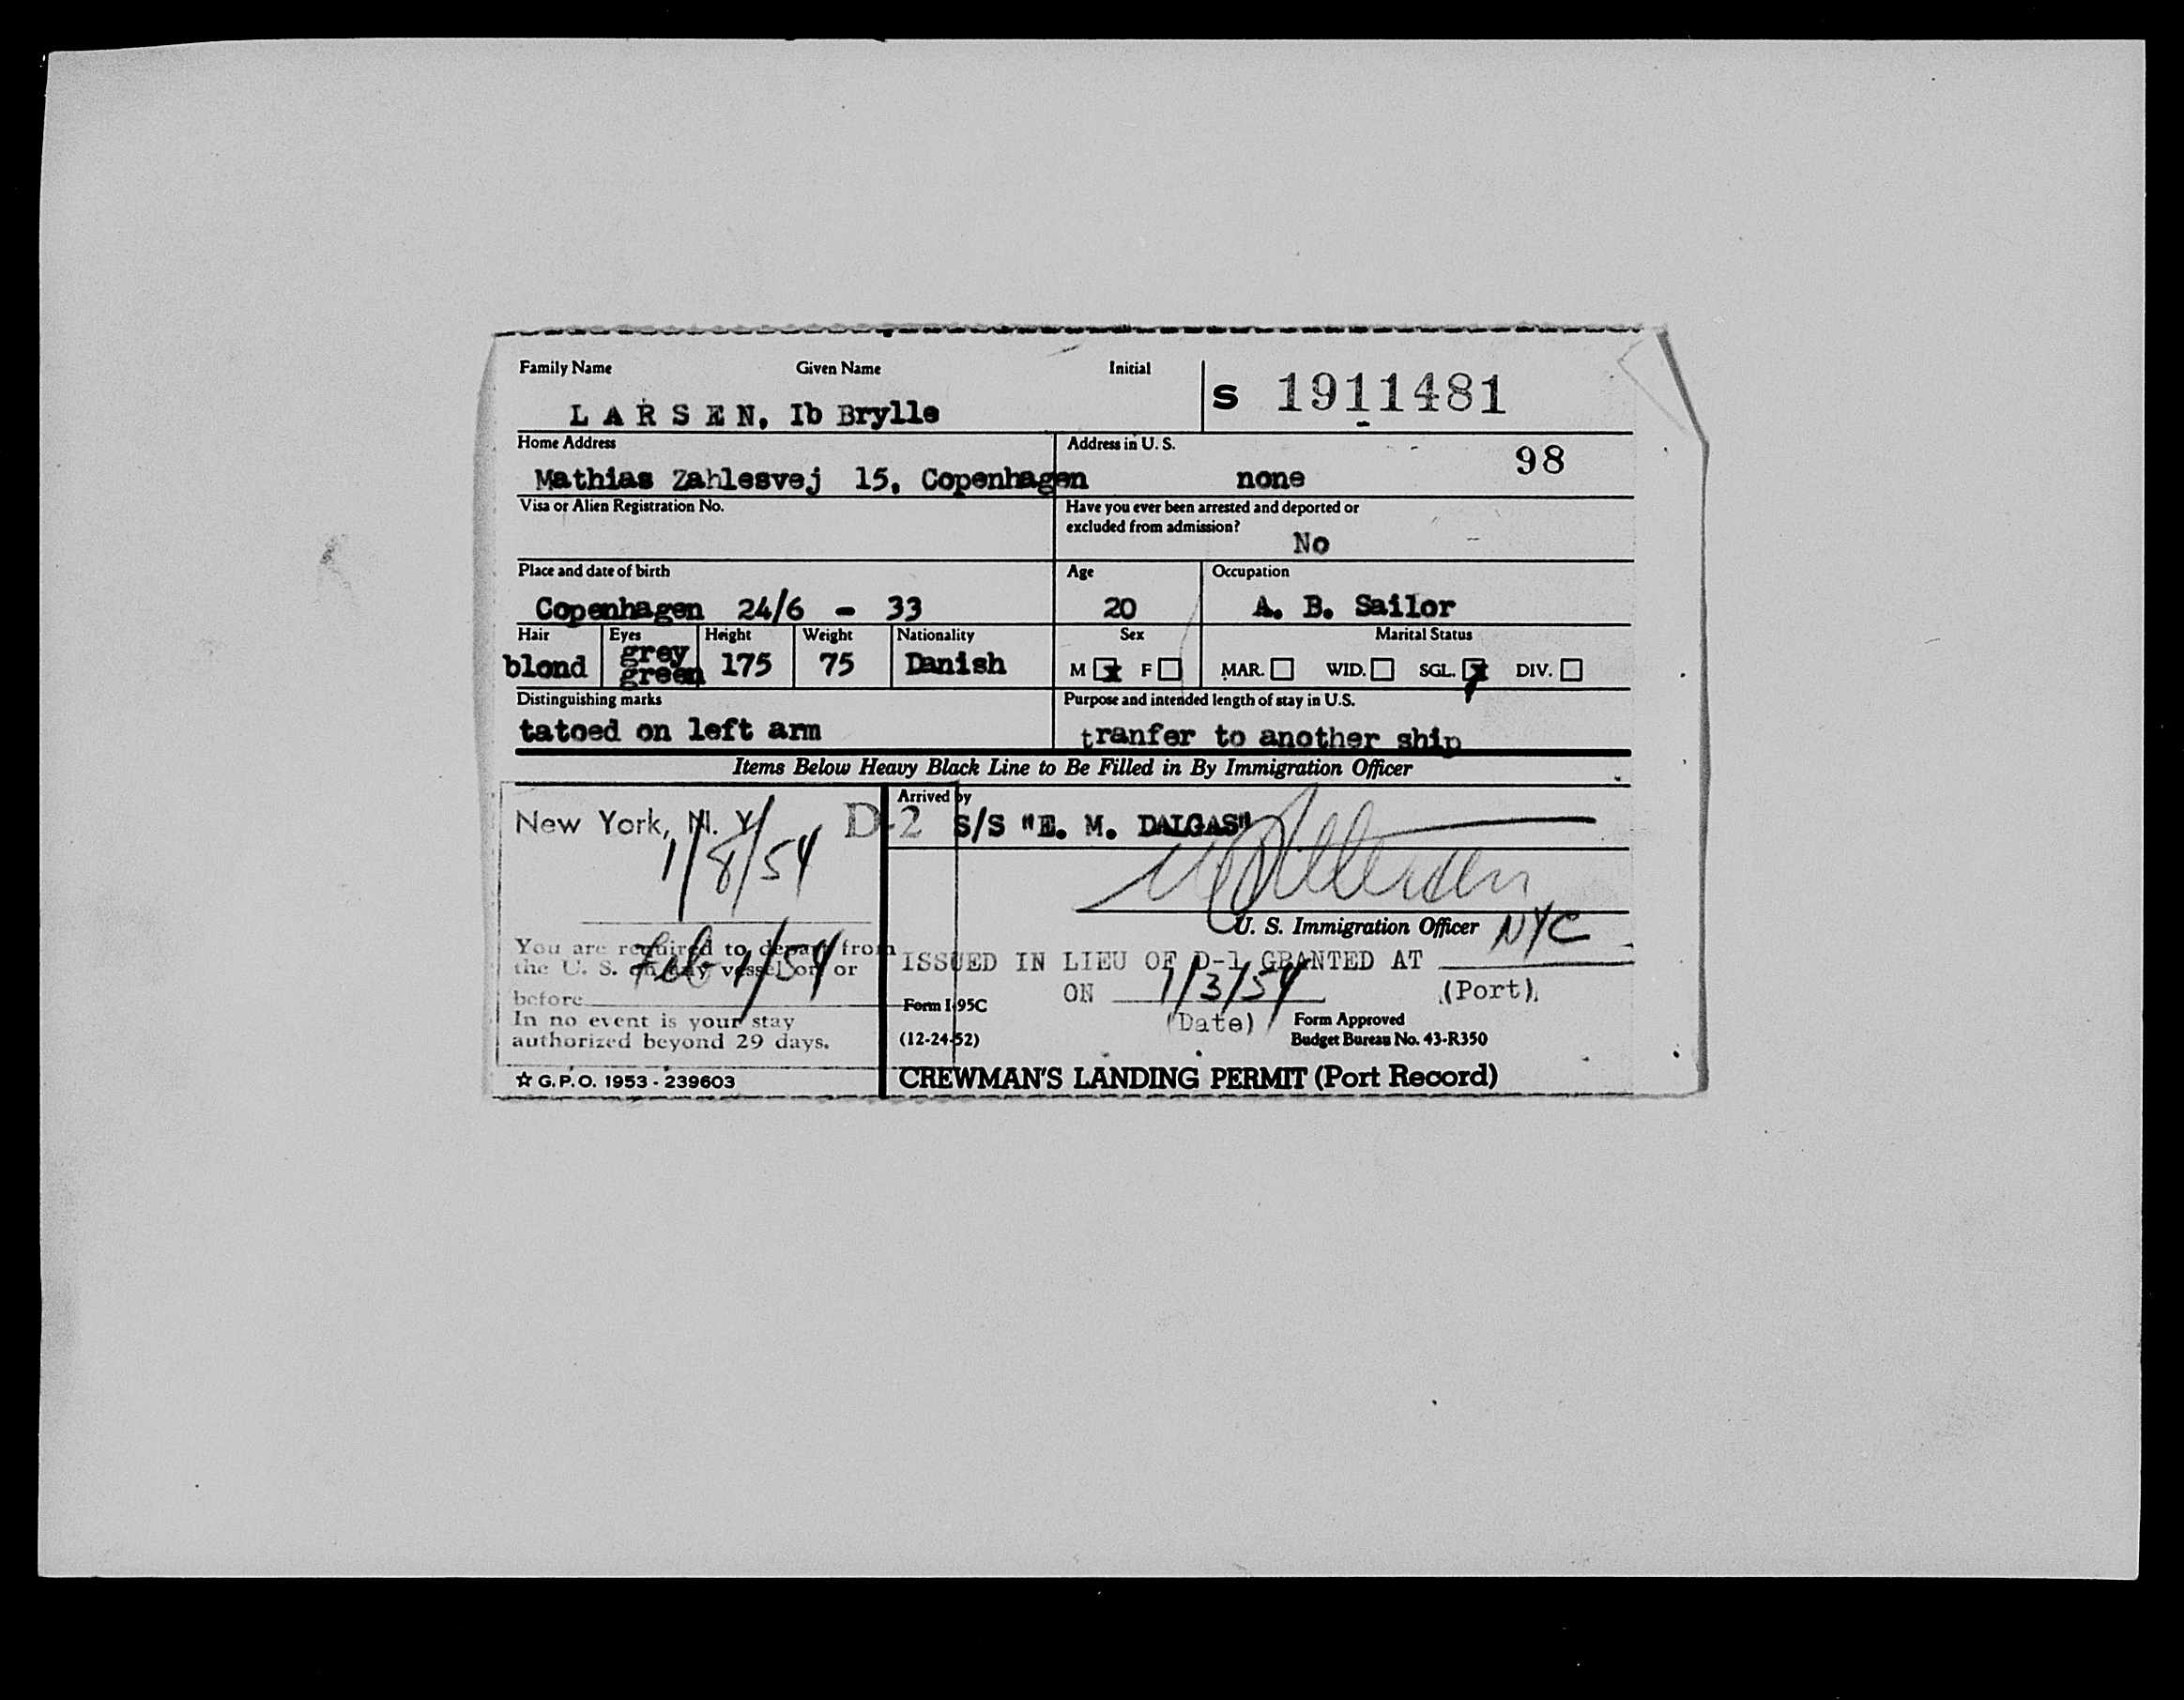 Family Name Given Name Initial
L A R S E N, Ib Brylle
S 1911481
Home Address
Mathias Zahlesvej 15, Copenhagen
Address in U. S.
98
none
Visa or Alien Registration No.
Have you ever been arrested and deported or
excluded from admission?
No
Place and date of birth
Copenhagen 24/6 - 33
Age
20
Occupation
A. B. Sailor
Hair
blond
Eyes
grey
green
Height
175
Weight
75
Nationality
Danish
Sex
M x F
Marital Status
MAR. WID. SGL. x DIV.
Distinguishing marks
tatoed on left arm
Purpose and intended length of stay in U.S.
tranfer to another ship
Items Below Heavy Black Line to Be Filled in By Immigration Officer
New York, N. Y.
1/8/54
D-2
Arrived by
S/S "E. M. DALGAS"
U. S. Immigration Officer
NYC
You are required to depart from
the U. S. on any vessel on or
before
Feb 1/54
In no event is your stay
authorized beyond 29 days.
ISSUED IN LIEU OF D-1 GRANTED AT
(Port)
ON 1/3/54
(Date)
Form I-95C
(12-24-52)
Form Approved
Budget Bureau No. 43-R350
☆ G.P.O. 1953 - 239603
CREWMAN'S LANDING PERMIT (Port Record)